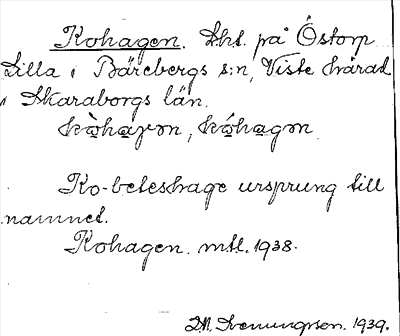 Kohagen. Lht. på Östorp
Lilla i Bärebergs s:n, Viste härad
i Skaraborgs län.
Ko-beteshage ursprung till
namnet.
Kohagen. mtl. 1938.
Svenungsson. 1939.